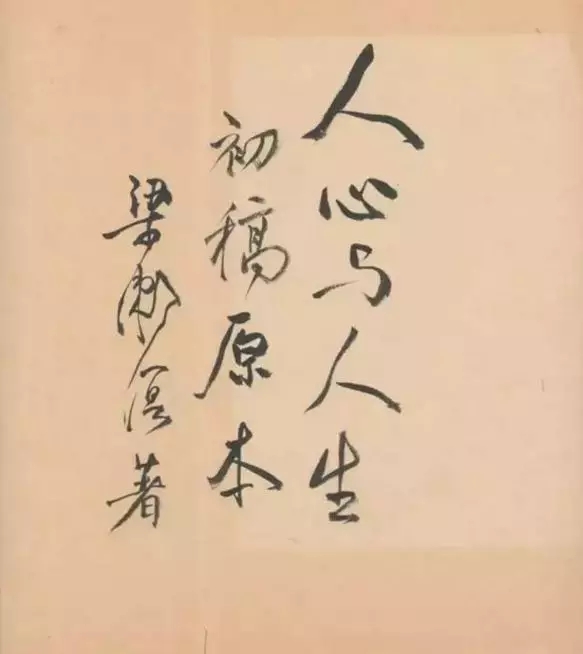 人心与人生
初稿原本
梁漱溟著